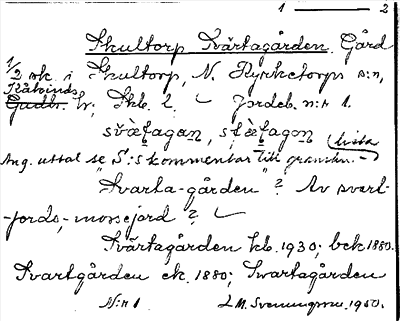 1 — 2
Skultorp Svärtagården. Gård
1/2 mk. i Skultorp, N. Kyrketorps s:n,
Kåkinds
Gudhr. hr, Skb. l. Jordeb. n:r 1.
svæ̀ʈagan, svæ̀ʈagɔn
Ang. uttal se S:s kommentar till granskn. lista
"Svarta-gården"? Av svart-
jords, mossejord?
Svärtagården kb. 1930; bek 1880.
Svartgården ek. 1880; Svartagården
N:r 1 L M. Svenungsson. 1950.